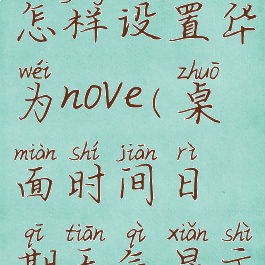 怎样设置华
wéi zhuō
为nove( 桌
miàn shí jiān rì
面时间日
qī tiān qì xiǎn shì
期天气显示